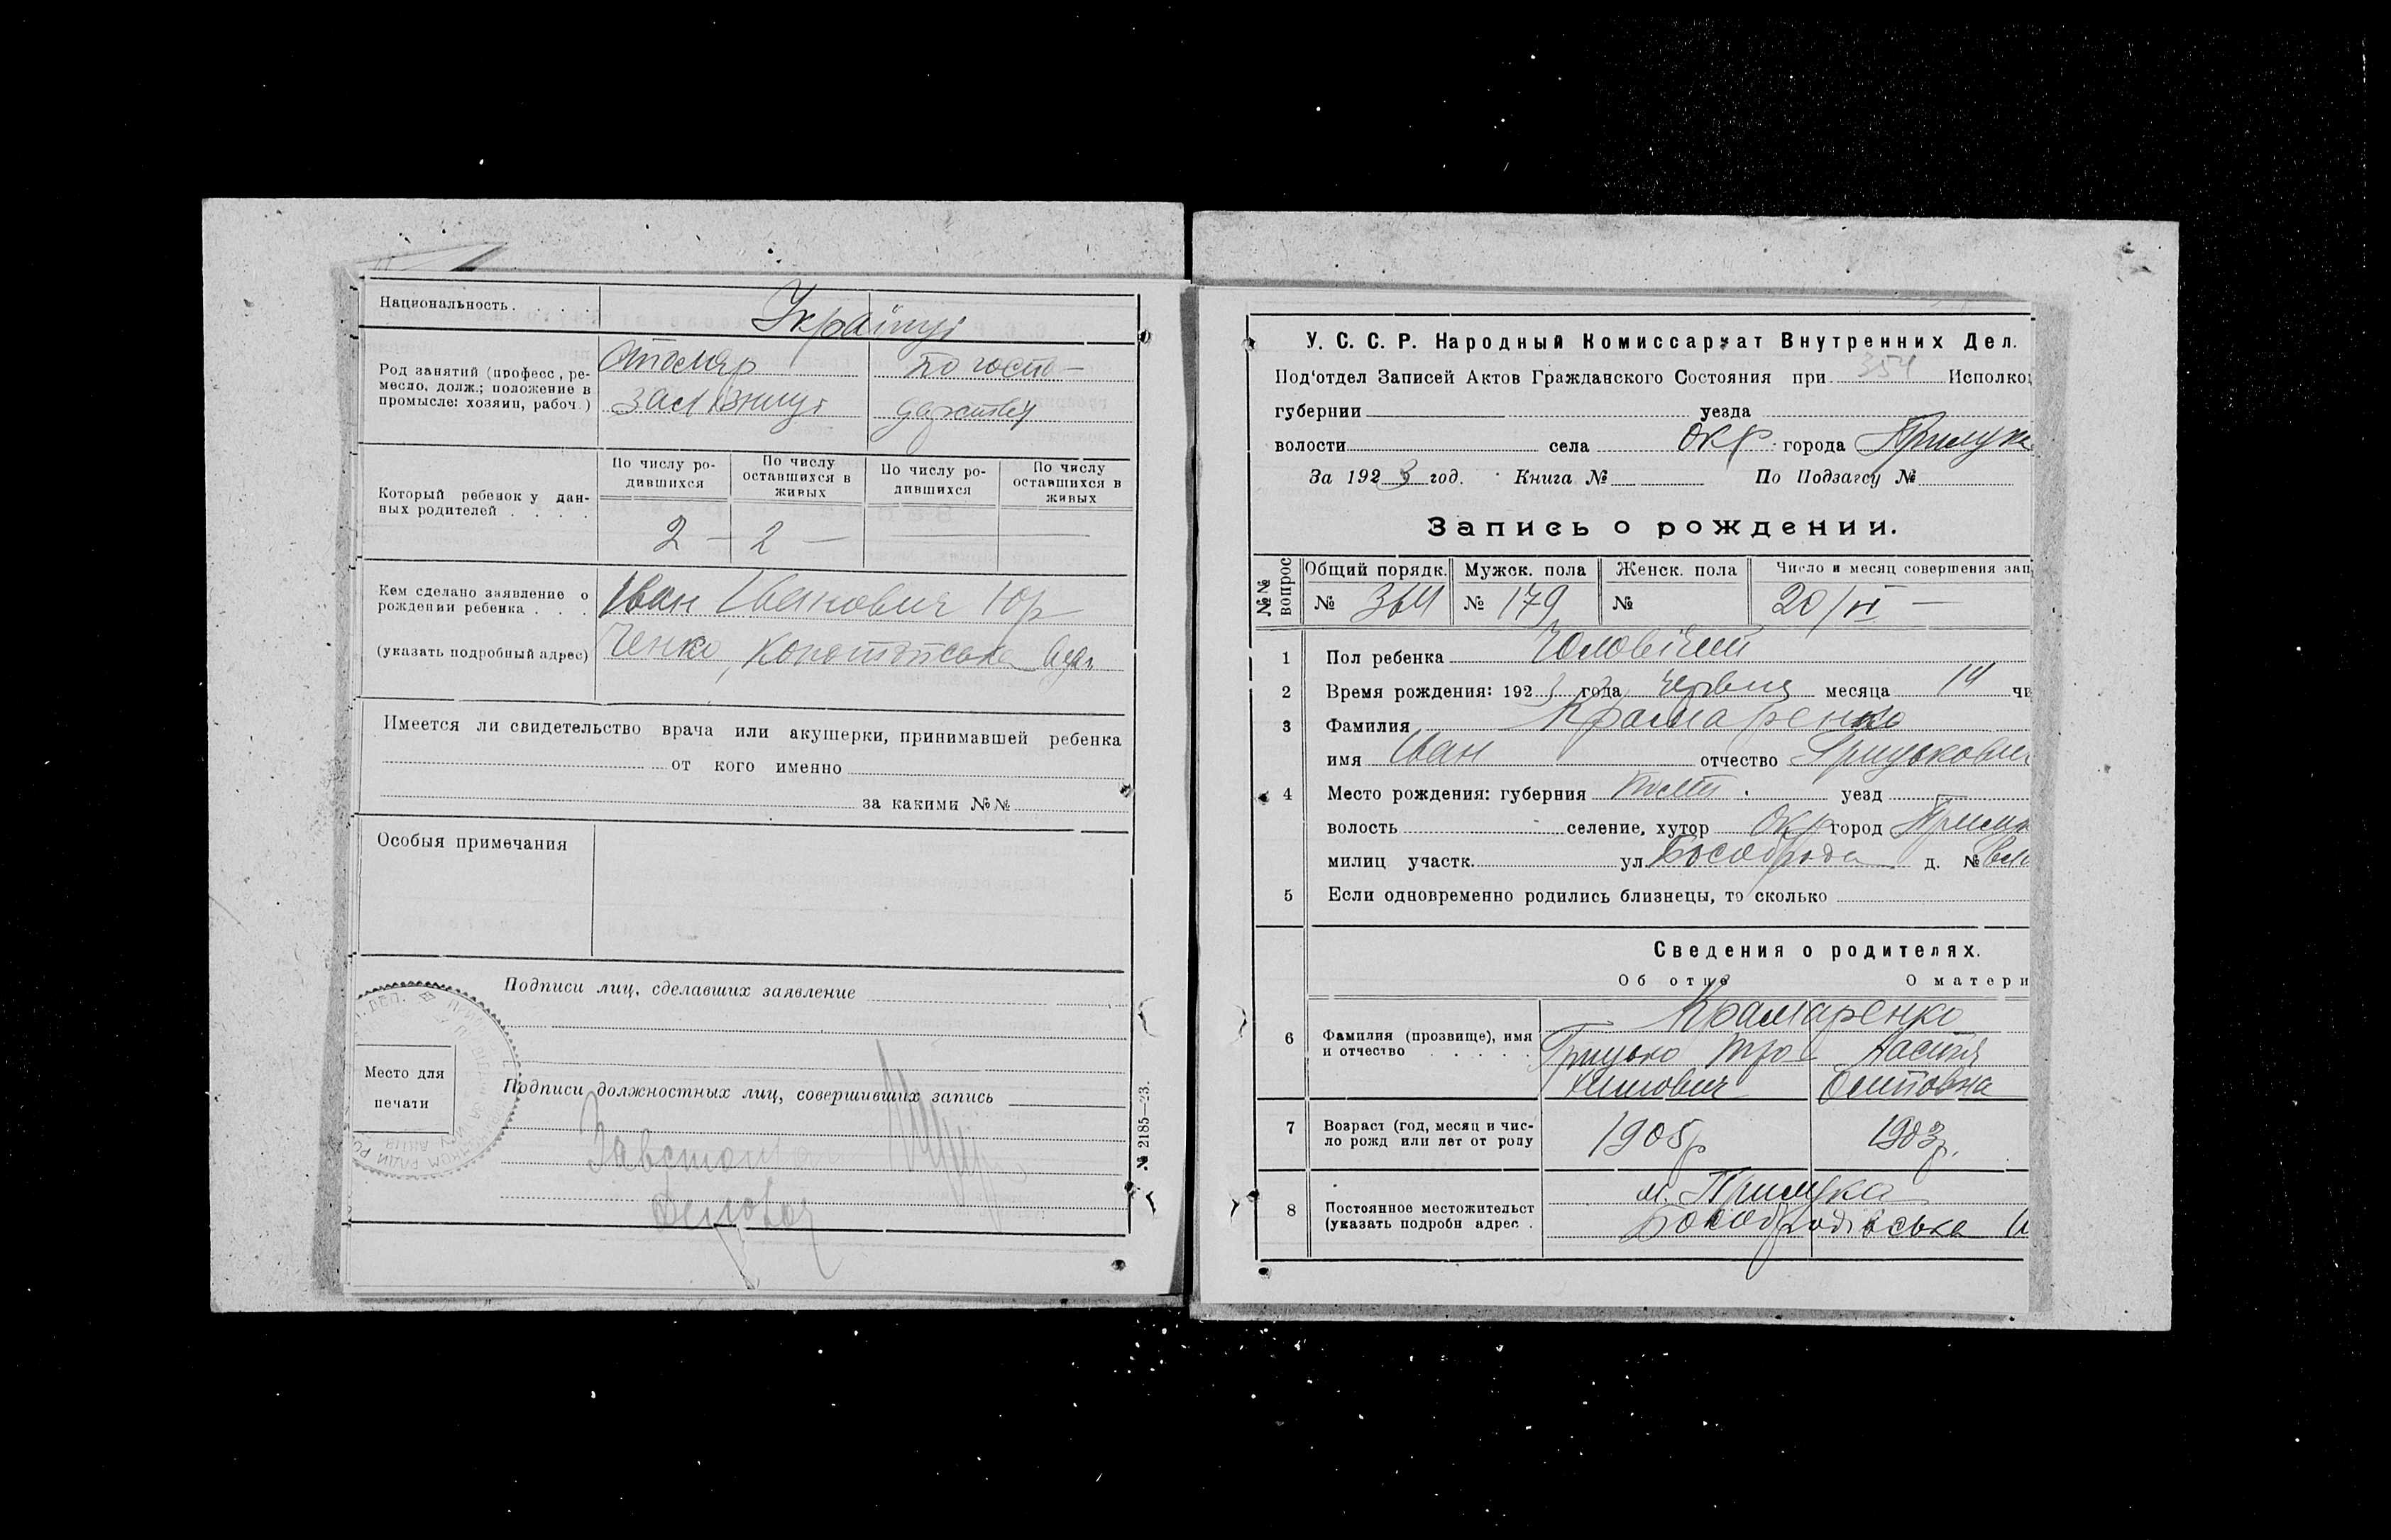 Национальность . . . . Українці
Род занятий (професс, ре-
месло, долж.; положение в
промысле: хозяин, рабоч.)
столяр
залізниці
по госпо-
дарству
Который ребенок у дан-
ных родителей . . . .
По числу ро-
дившихся
По числу
оставшихся в
живых
По числу ро-
дившихся
По числу
оставшихся в
живых
2 — 2 —
Кем сделано заявление о
рождении ребенка . . .
(указать подробный адрес)
Іван Іванович Юр
ченко, Конотопська вул
Имеется ли свидетельство врача или акушерки, принимавшей ребенка
от кого именно
за какими №№
Особыя примечания
Подписи лиц, сделавших заявление
Место для
печати
Подписи должностных лиц, совершивших запись
№ 2185—23.
У. С. С. Р. Народный Комиссариат Внутренних Дел.
Под'отдел Записей Актов Гражданского Состояния при 354 Исполко
губернии уезда
волости села окр. города Прилука
За 1923 год. Книга № По Подзагсу №
Запись о рождении.
№№ вопрос
Общий порядк. Мужск. пола Женск. пола Число и месяц совершения зап
№ 364 № 179 № 20/VI —
1 Пол ребенка Чоловічий
2 Время рождения: 1923 года Червня месяца 14 чи
3 Фамилия Крамаренко
имя Іван отчество Грицькович
4 Место рождения: губерния Полт. уезд
волость селение, хутор Окр город Прилук
милиц участк. ул. д. №
5 Если одновременно родились близнецы, то сколько
Сведения о родителях.
Об отце О матери
6 Фамилия (прозвище), имя
и отчество . . . . .
Крамаренко
Грицько Тро- Настя
химович Осиповна
7 Возраст (год, месяц и чис-
ло рожд или лет от роду
1905р 1903р.
8 Постоянное местожительст
(указать подробн адрес .
м. Прилука